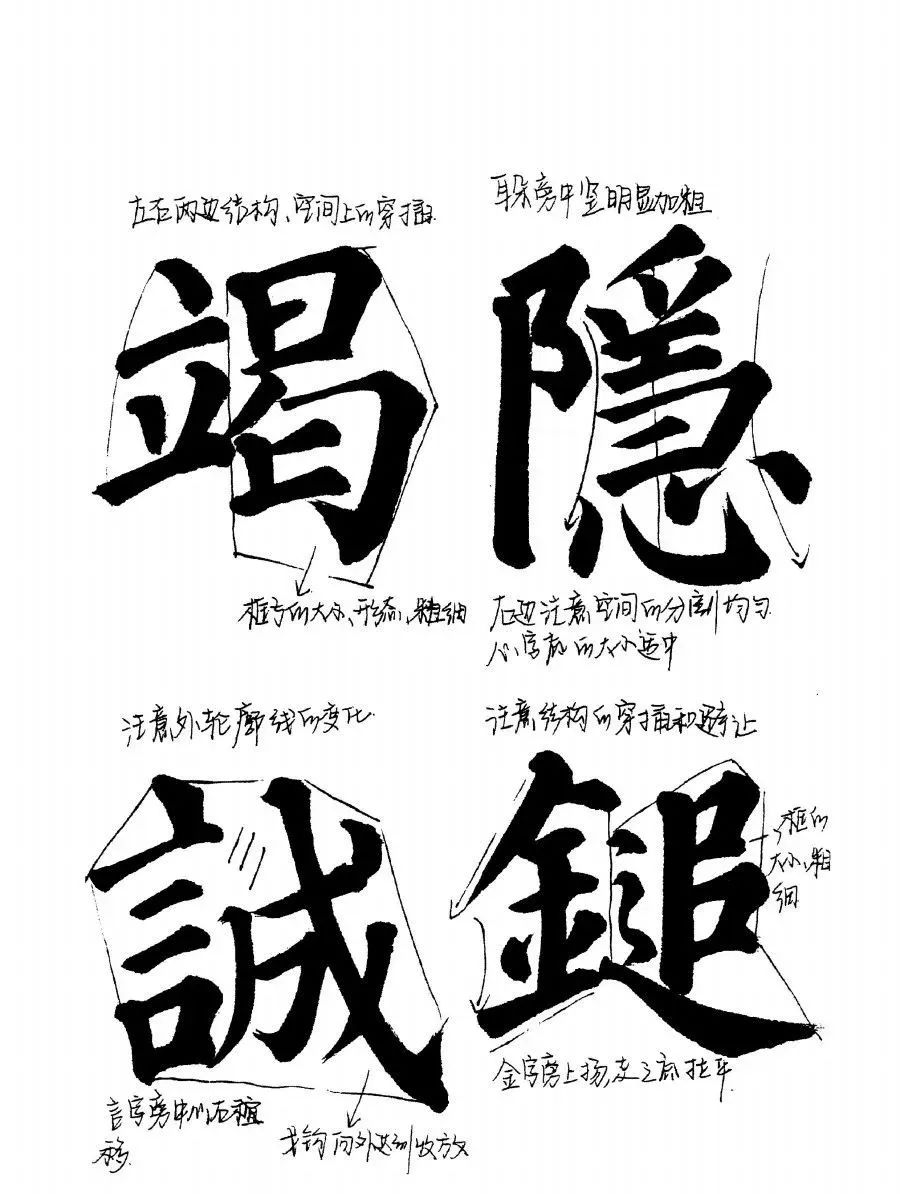 左右两边结构、空间上的穿插
竭
框与的大小、形态、粗细
耳朵旁中竖明显加粗
隱
右边注意空间的分割均匀
心字底的大小适中
注意外轮廓线的变化
誠
言字旁中心右
移
戈钩向外达到收放
注意结构的穿插和避让
鎚
框的
大小、粗
细
金字旁上扬,走之底拉平